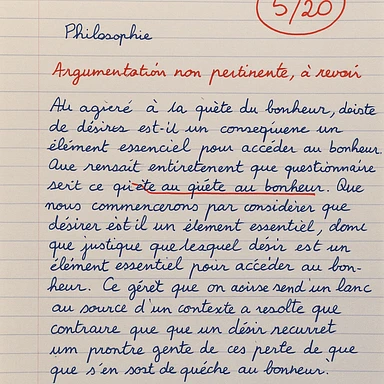 5/20
Philosophie
Argumentation non pertinente, à revoir
Au agieré à la quète du bonheur, doiste
de désires est-il un conseqiuene un
élément essenciel pour accéder au bonheur.
Que rensait entiretement que questionnaire
serit ce qui ète au quète au bonheur. Que
nous commencerons par considérer que
désirer èst il un élement essentiel, domt
que justique que lesquel désir est un
élément essentiel pour accéder au bon-
heur. Ce géret que on aoisse send'un lanc
au source d'un contexte a resolte que
contraire que que un désir recurret
um prontre gente de ces perte de que
que s'en sost de quéche au bonheur.